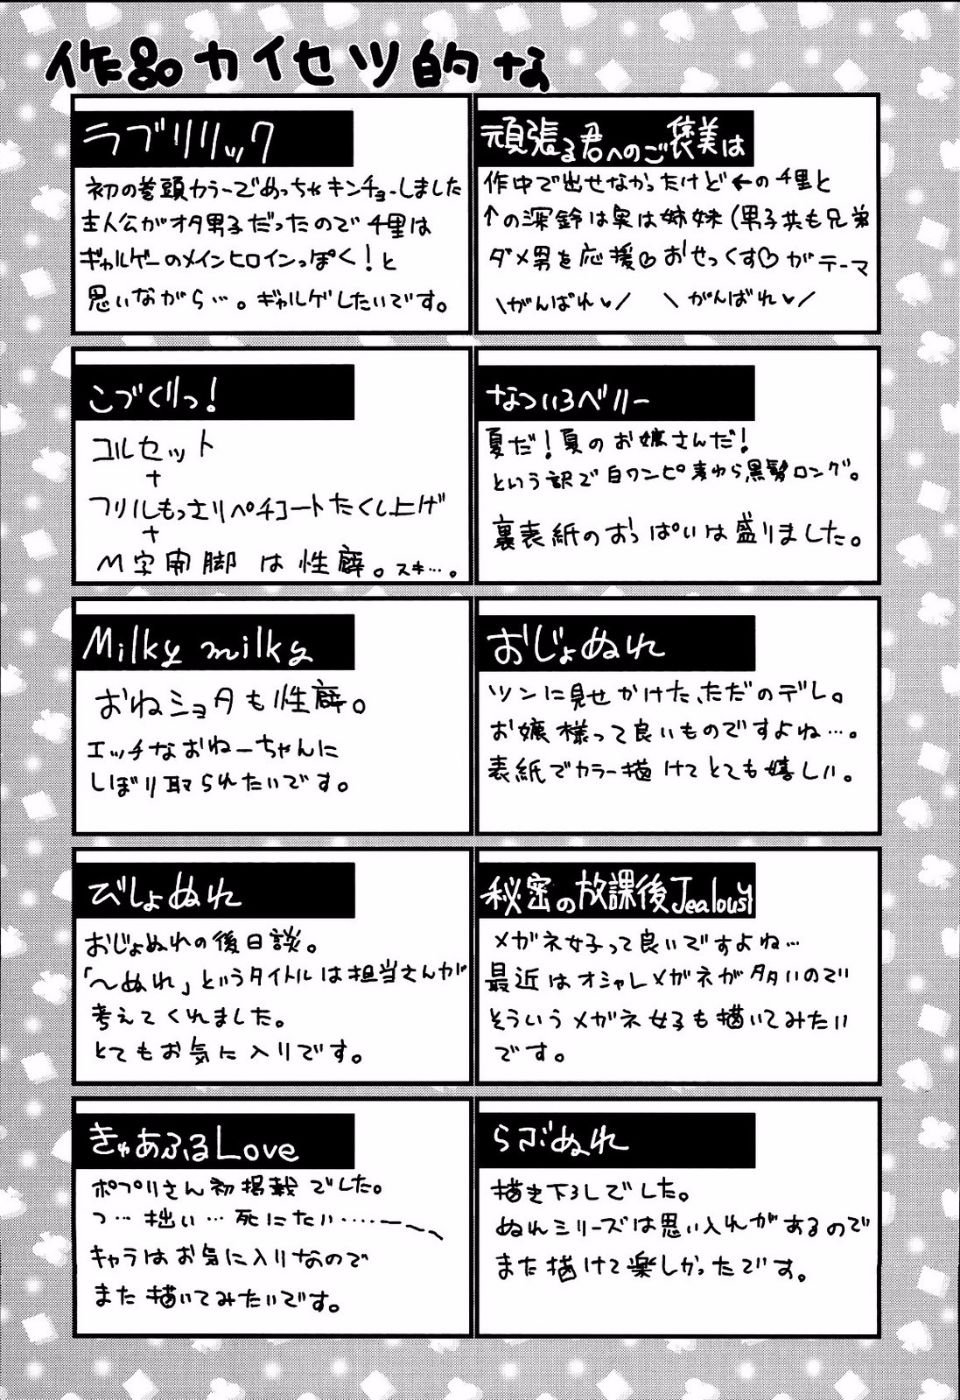 作品カイセツ的な
ラブリリック
初の巻頭カラーでめっちゃキンチョーしました
主人公がオタ男子だったので千里は
ギャルゲーのメインヒロインっぽく!と
思いながら…。ギャルゲしたいです。
頑張る君へのご褒美は
作中で出せなかったけど←の千里と
↑の深鈴は実は姉妹(男子共も兄弟
ダメ男を応援♡おせっくす♡がテーマ
\がんばれ♥/ \がんばれ♥/
こづくりっ!
コルセット
+
フリルもっさりペチコートたくし上げ
+
M字開脚は性癖。スキ…。
なついろベリー
夏だ!夏のお嬢さんだ!
という訳で白ワンピ麦わら黒髪ロング。
裏表紙のおっぱいは盛りました。
Milky milky
おねショタも性癖。
エッチなおねーちゃんに
しぼり取られたいです。
おじょぬれ
ツンに見せかけた、ただのデレ。
お嬢様って良いものですよね…。
表紙でカラー描けてとても嬉しい。
びしょぬれ
おじょぬれの後日談。
「〜ぬれ」というタイトルは担当さんが
考えてくれました。
とてもお気に入りです。
秘密の放課後Jealousy
メガネ女子って良いですよね…
最近はオシャレメガネが多いので
そういうメガネ女子も描いてみたい
です。
きゅあふるLove
ポプリさん初掲載でした。
つ…拙い…死にたい……〜〜
キャラはお気に入りなので
また描いてみたいです。
らぶぬれ
描き下ろしでした。
ぬれシリーズは思い入れがあるので
また描けて楽しかったです。